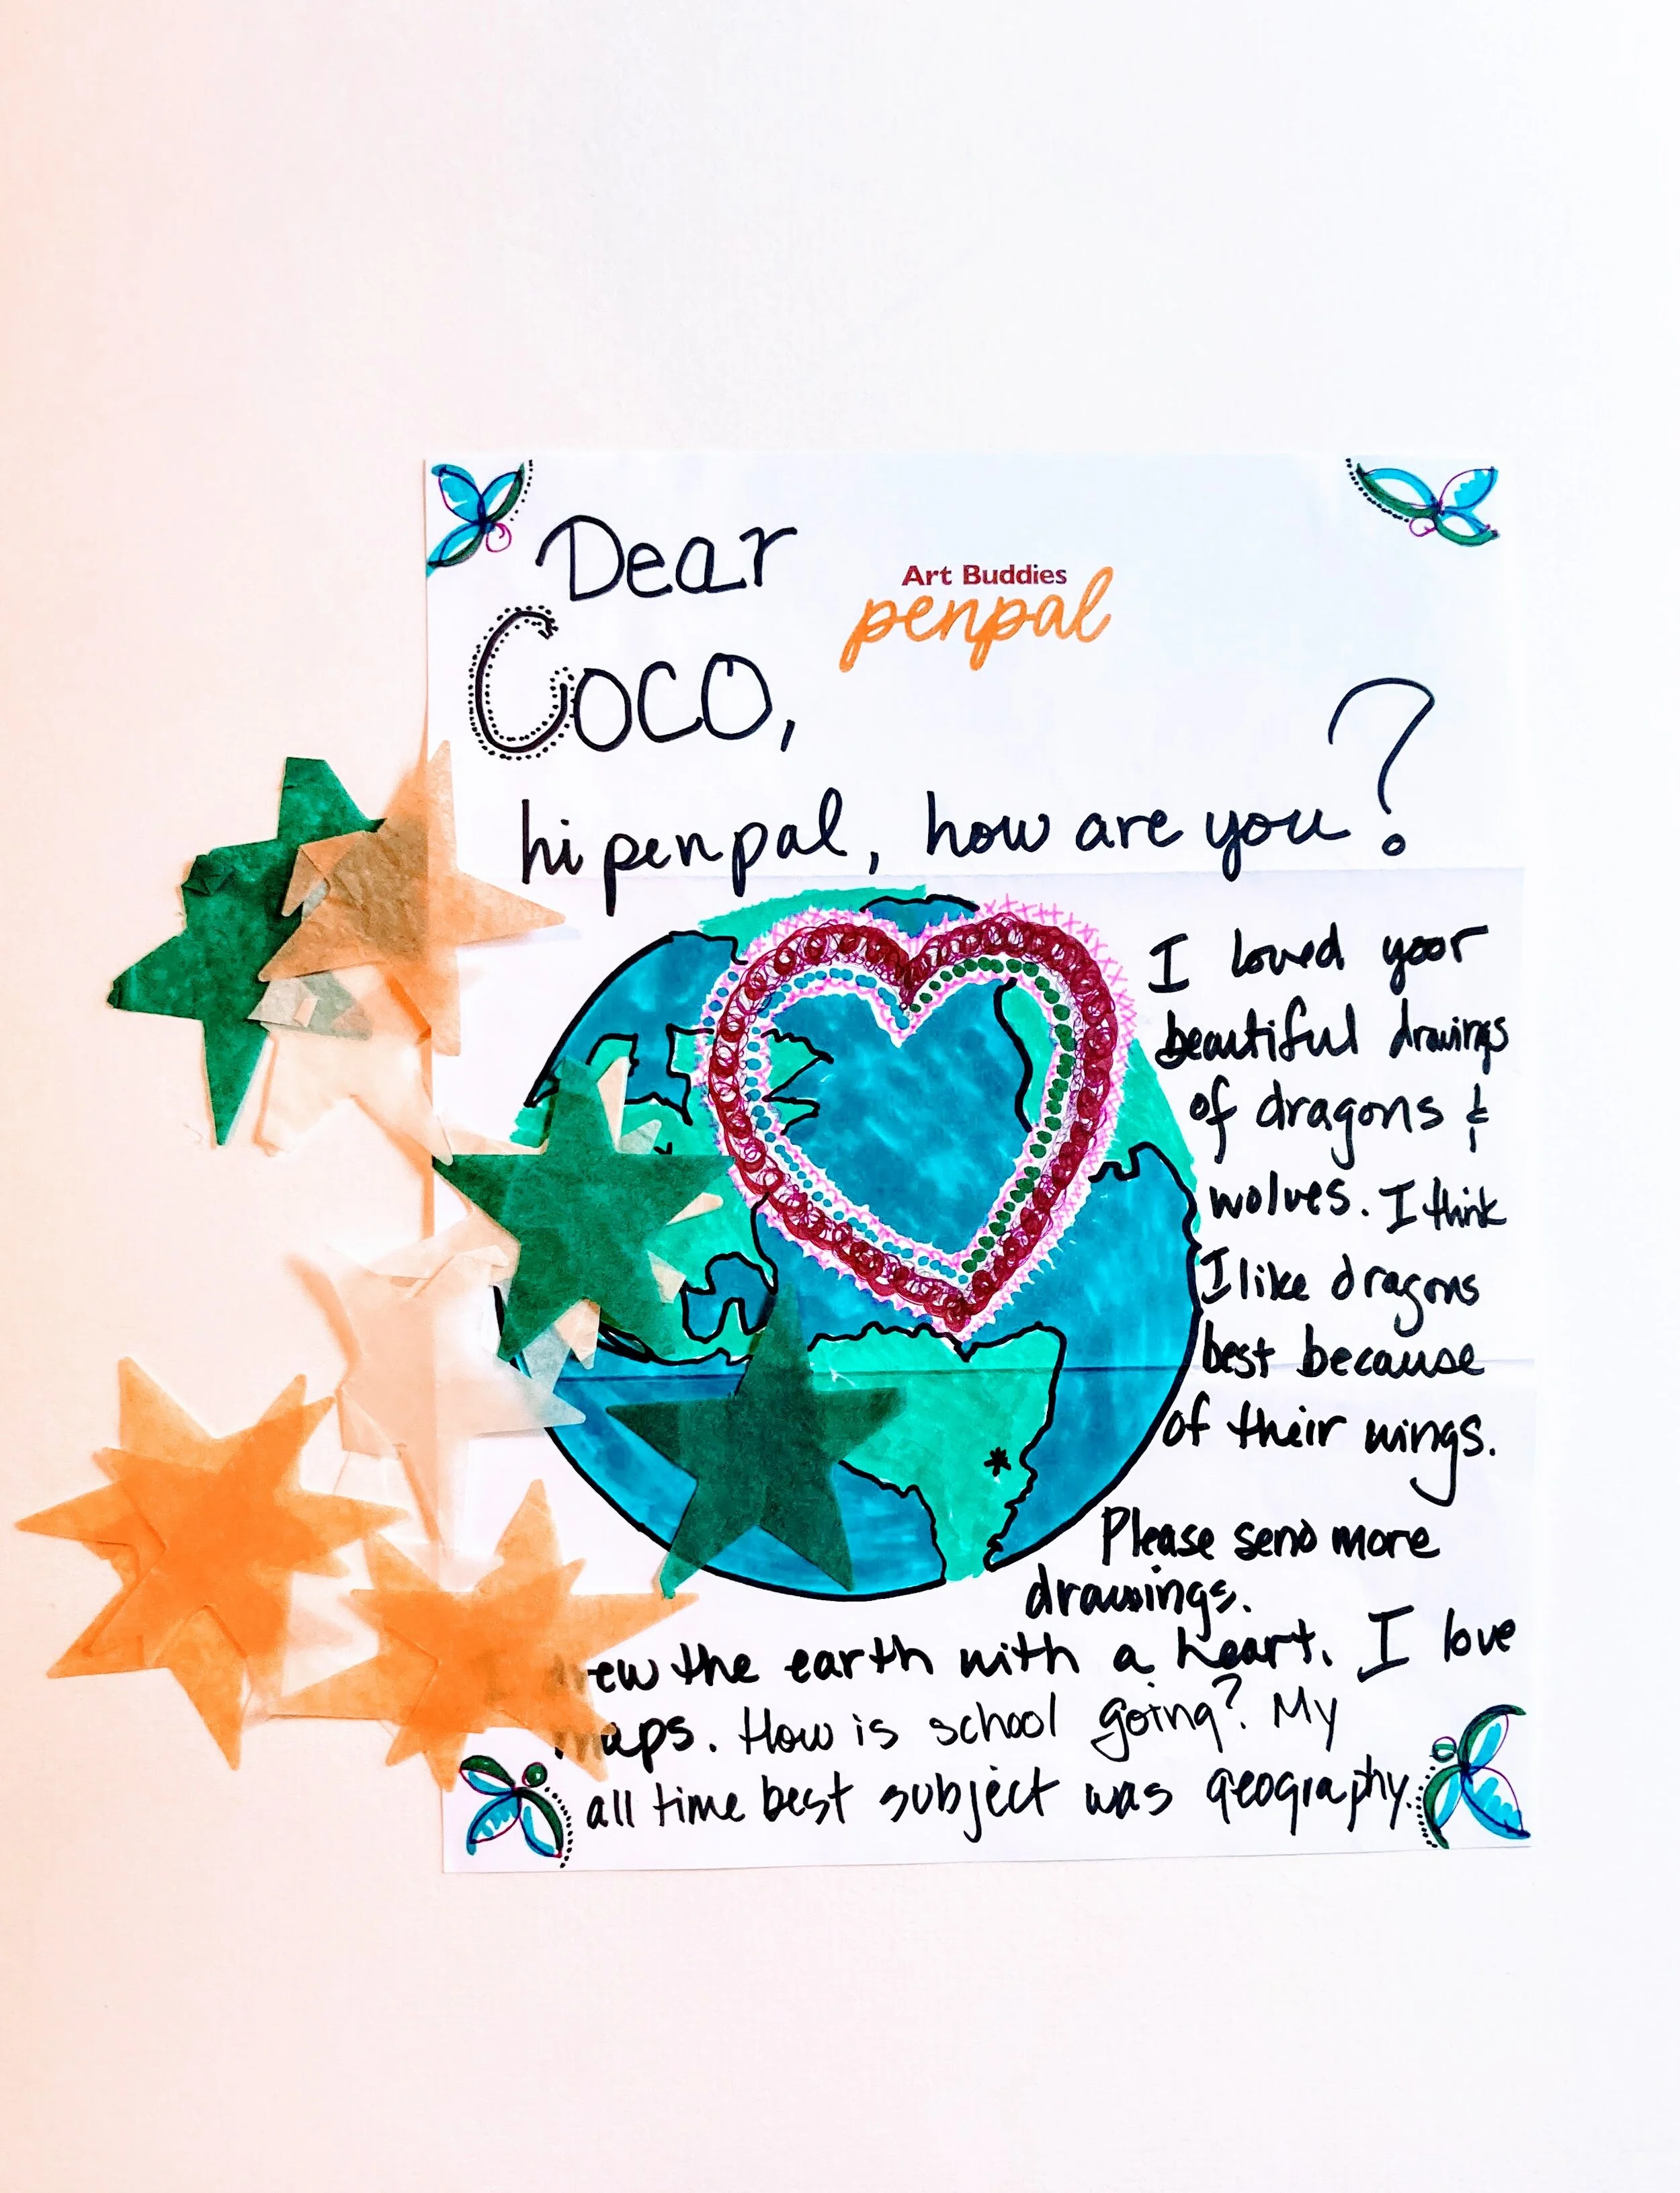 Dear
Art Buddies
penpal
Coco,
hi penpal, how are you?
I loved your
beautiful drawings
of dragons &
wolves. I think
I like dragons
best because
of their wings.
Please send more
drawings.
the earth with a heart. I love
How is school going? My
all time best subject was geography.